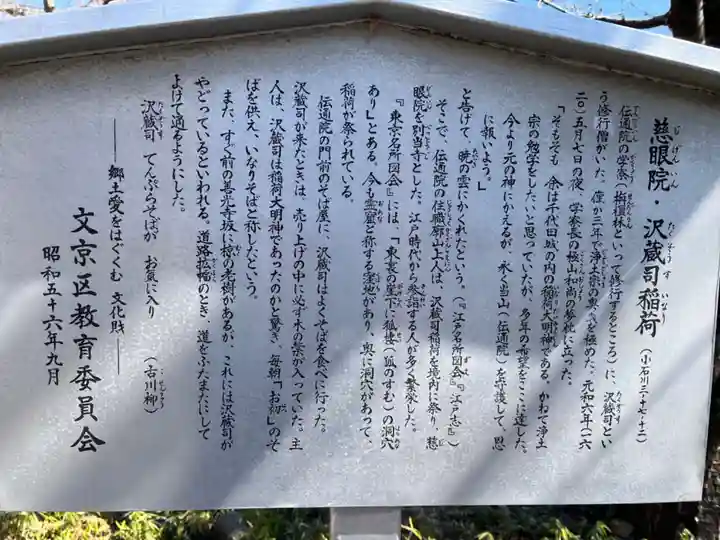 慈眼院・沢蔵司稲荷 (小石川三-十七-十二)
伝通院の学寮(栴檀林といって修行するところ)に、沢蔵司とい
う修行僧がいた。僅か三年で浄土宗の奥義を極めた。元和六年(一六
二〇)五月七日の夜、学寮長の極山和尚の夢枕に立った。
「そもそも 余は千代田城の内の稲荷大明神である。かねて浄土
宗の勉学をしたいと思っていたが、多年の希望をここに達した。
今より元の神にかえるが、永く当山(伝通院)を守護して、恩
に報いよう。」
と告げて、暁の雲にかくれたという。(『江戸名所図会』『江戸志』)
そこで、伝通院の住職廓山上人は、沢蔵司稲荷を境内に祭り、慈
眼院を別当寺とした。江戸時代から参詣する人が多く繁栄した。
『東京名所図会』には、「東裏の崖下に狐棲(狐のすむ)の洞穴
あり」とある。今も霊窟と称する窪地があり、奥に洞穴があって、
稲荷が祭られている。
伝通院の門前のそば屋に、沢蔵司はよくそばを食べに行った。
沢蔵司が来たときは、売り上げの中に必ず木の葉が入っていた。主
人は、沢蔵司は稲荷大明神であったのかと驚き、毎朝「お初」のそ
ばを供え、いなりそばと称したという。
また、すぐ前の善光寺坂に椋の老樹があるが、これには沢蔵司が
やどっているといわれる。道路拡幅のとき、道をふたまたにして
よけて通るようにした。
沢蔵司 てんぷらそばが お気に入り (古川柳)
――郷土愛をはぐくむ 文化財――
文京区教育委員会
昭和五十六年九月